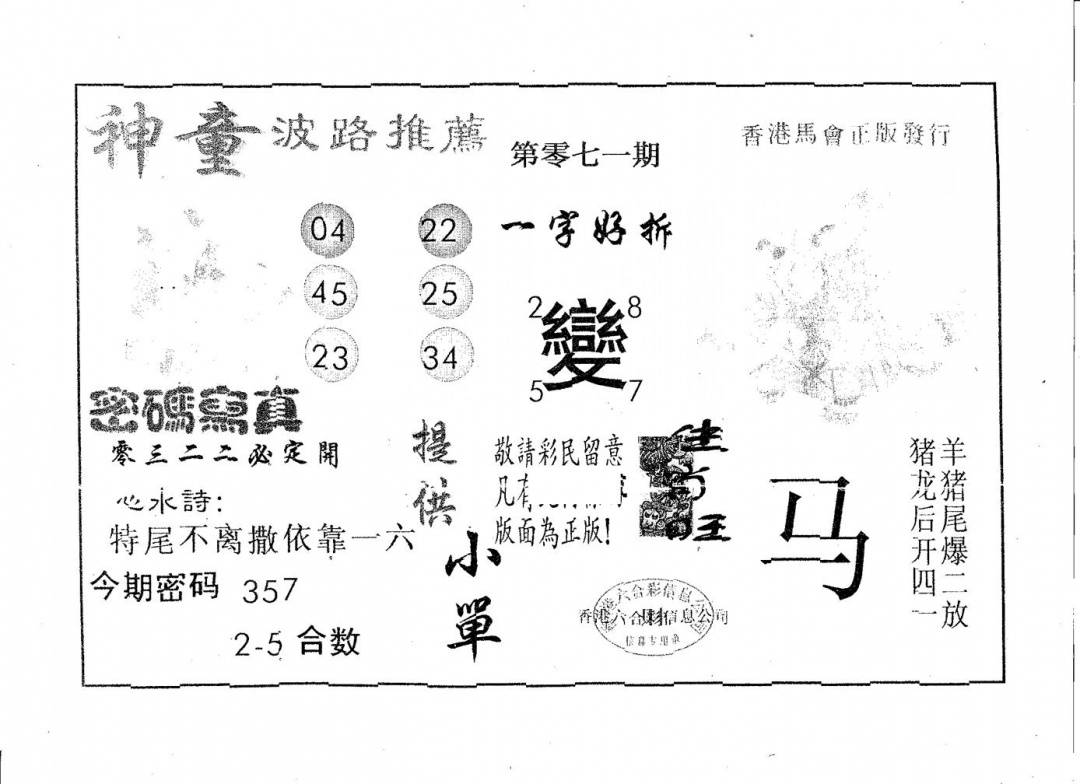 神童波路推薦
第零七一期
香港馬會正版發行
04 22
45 25
23 34
一字好拆
2 8
變
5 7
密碼寫真
零三二二必定開
心水詩:
特尾不离撒依靠一六
今期密码 357
2-5 合数
提供
小單
敬請彩民留意
凡有
版面為正版!
马
羊猪尾爆二放
猪龙后开四一
香港六合彩信息公司